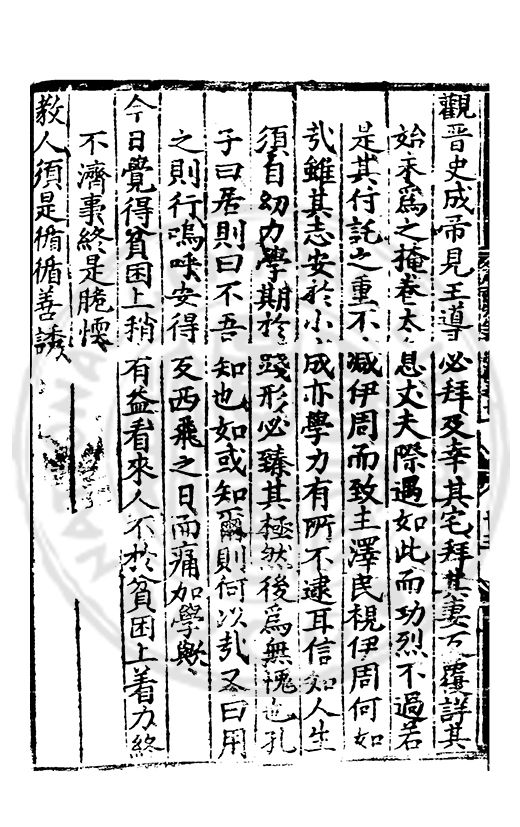 觀晋史成帝見王導必拜及幸其宅拜其妻反覆詳其
始末爲之掩卷太息丈夫際遇如此而功烈不過若
是其付託之重不减伊周而致主澤民視伊周何如
㢤雖其志安於小成亦學力有所不逮耳信知人生
須自幼力學期於踐形必臻其極然後爲無愧也孔
子曰居則曰不吾知也如或知爾則何以㢤又曰用
之則行嗚呼安得反西飛之日而痛加學歟
今日覺得貧困上稍有益看來人不於貧困上着力終
不濟事終是脆愞
教人須是循循善誘